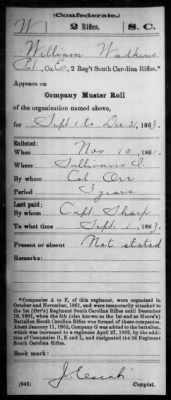 (Confederate.)
W 2 Rifles. S. C.
William Watkins
Pvt., Co. E, 2 Reg't South Carolina Rifles.*
Appears on
Company Muster Roll
of the organization named above,
for Sept 1 to Dec 31, 1863.
Enlisted:
When Nov 10, 1861.
Where Sullivans I.
By whom Col Orr
Period 3 years
Last paid:
By whom Capt Sharp
To what time Sept 1, 1863.
Present or absent Not stated
*Companies A to F, of this regiment, were organized in
October and November, 1861, and were temporarily attached to
the 1st (Orr's) Regiment South Carolina Rifles until December
10, 1861, when the 5th (also known as the 1st and as Moore's)
Battalion South Carolina Rifles was formed of these companies.
About January 11, 1862, Company G was added to the battalion,
which was increased to a regiment April 27, 1862, by the addition
of Companies H, K and L, and designated the 2d Regiment
South Carolina Rifles.
Book mark:
(642) Copyist.